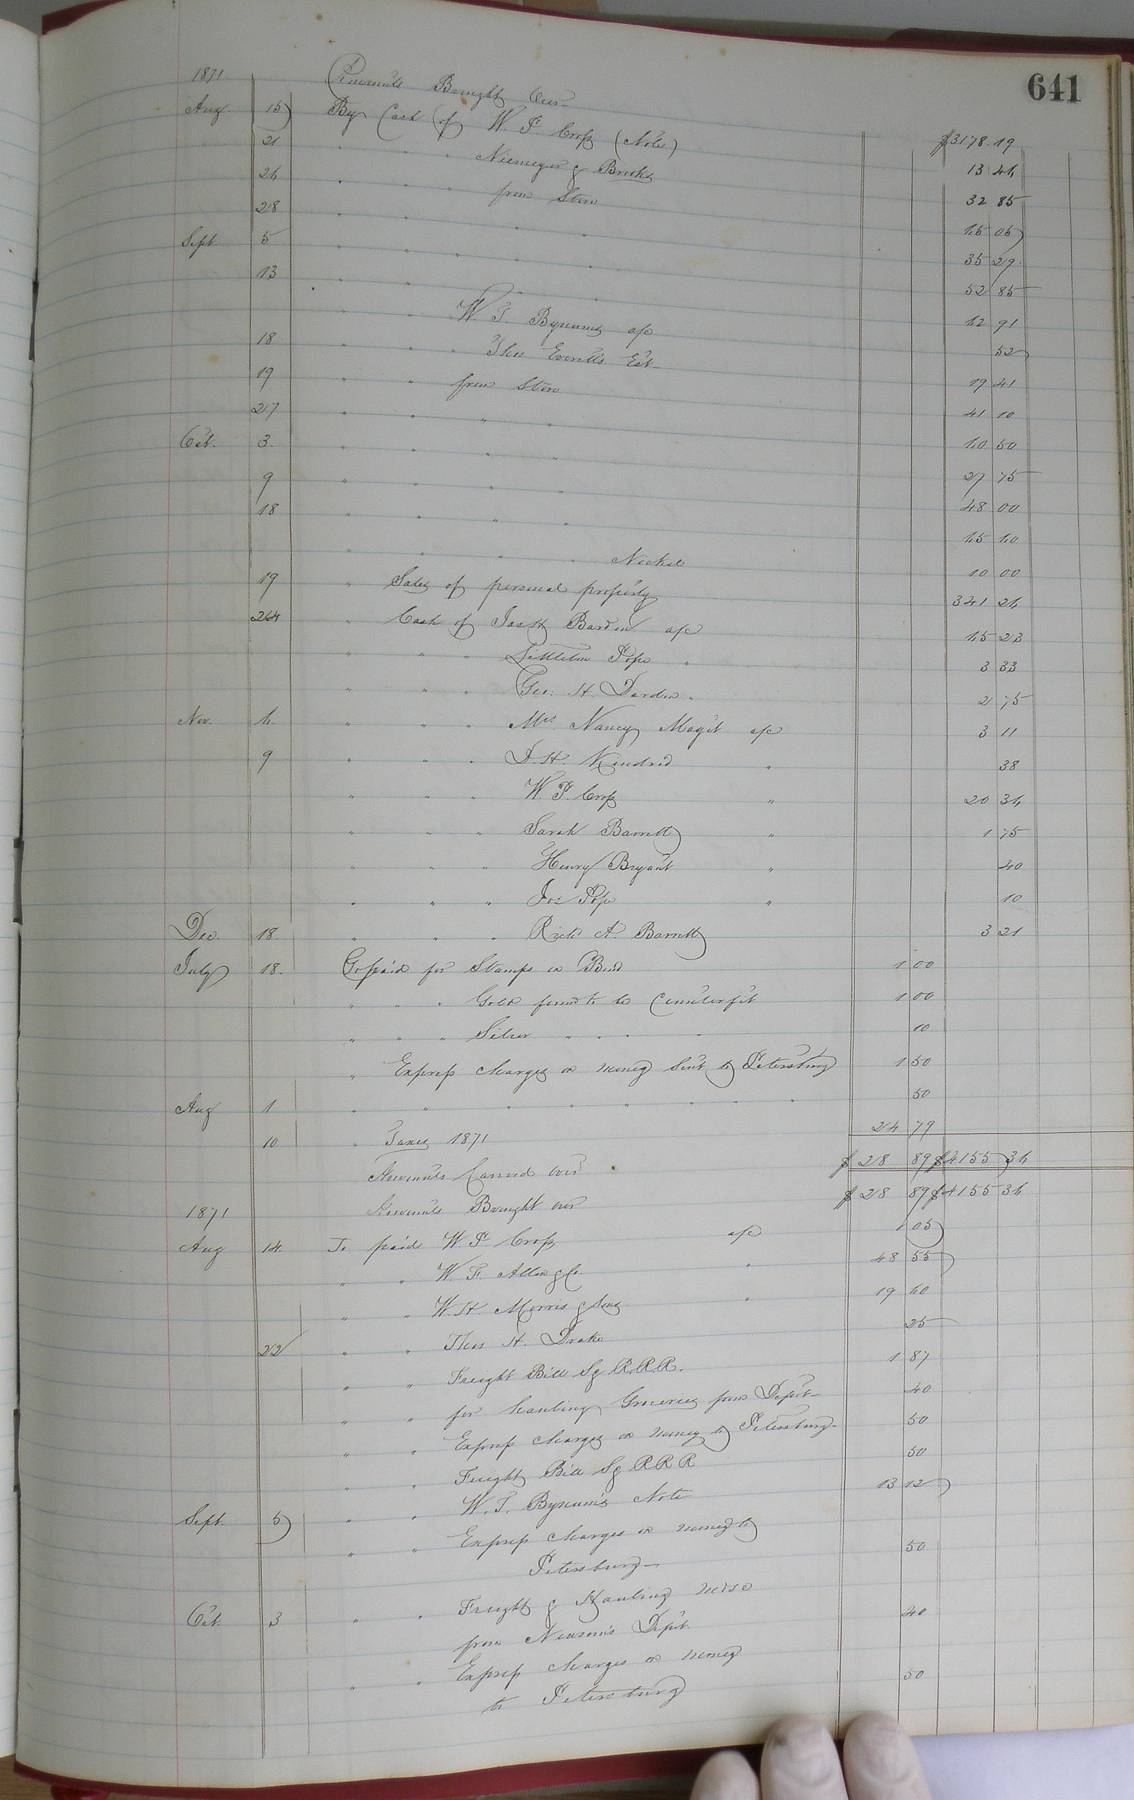 641
1871 Amounts Brought Over $3178.19
Aug 15 By Cash of W. P. Cross (Note) 13 46
21 " " " Niemeyer & Brooks 32 85
26 " " " from Store 15 05
28 " " " " " 35 29
Sept 5 " " " " " 52 85
13 " " " " " 12 91
" " " W T Bynums a/c 52
18 " " " Thos Everetts Est 19 41
19 " " from Store 41 10
27 " " " " 10 50
Oct. 3 " " " " 27 75
9 " " " " 48 00
18 " " " " 15 10
" " " " Nickel 10 00
19 " Sales of personal property 341 26
24 " Cash of Jas H Barden a/c 15 23
" " " Littleton Pope " 3 33
" " " Geo. H. Darden " 2 75
Nov. 6 " " " Mrs Nancy Magit a/c 3 11
9 " " " J. H. Kindred " 38
" " " W. P. Cross " 20 36
" " " Sarah Barrett " 1 75
" " " Henry Bryant " 40
" " " Jos Pope " 10
Dec. 18 " " " Richd A Barrett 3 21
July 18 To paid for Stamps on Bond 1 00
" " " Gold found to be Counterfit 1 00
" " " Silver " " " " 10
" Express charges on money Sent to Petersburg 1 50
Aug 1 " " " " " " " " 50
10 " Taxes 1871 24 79
Amounts Carried over $28 89 $4155 36
1871 Amounts Brought over $28 89 $4155 36
Aug 14 To paid W. P. Cross a/c 1 05
" " W. F. Allen & Co. " 48 55
" " W. H. Morris & Sons " 19 60
22 " " Thos H. Drake 25
" " Freight Bill Sg R.R.R. 1 87
" " for hauling Groceries from Depot 40
" " Express charges on money to Petersburg 50
" " Freight Bill Sg R R R 50
Sept. 5 " " W. T. Bynum's Note 13 12
" " Express charges on money to
Petersburg 50
Oct. 3 " " Freight & Hauling mdse
from Newsom's Depot. 40
" " Express charges on money
to Petersburg 50